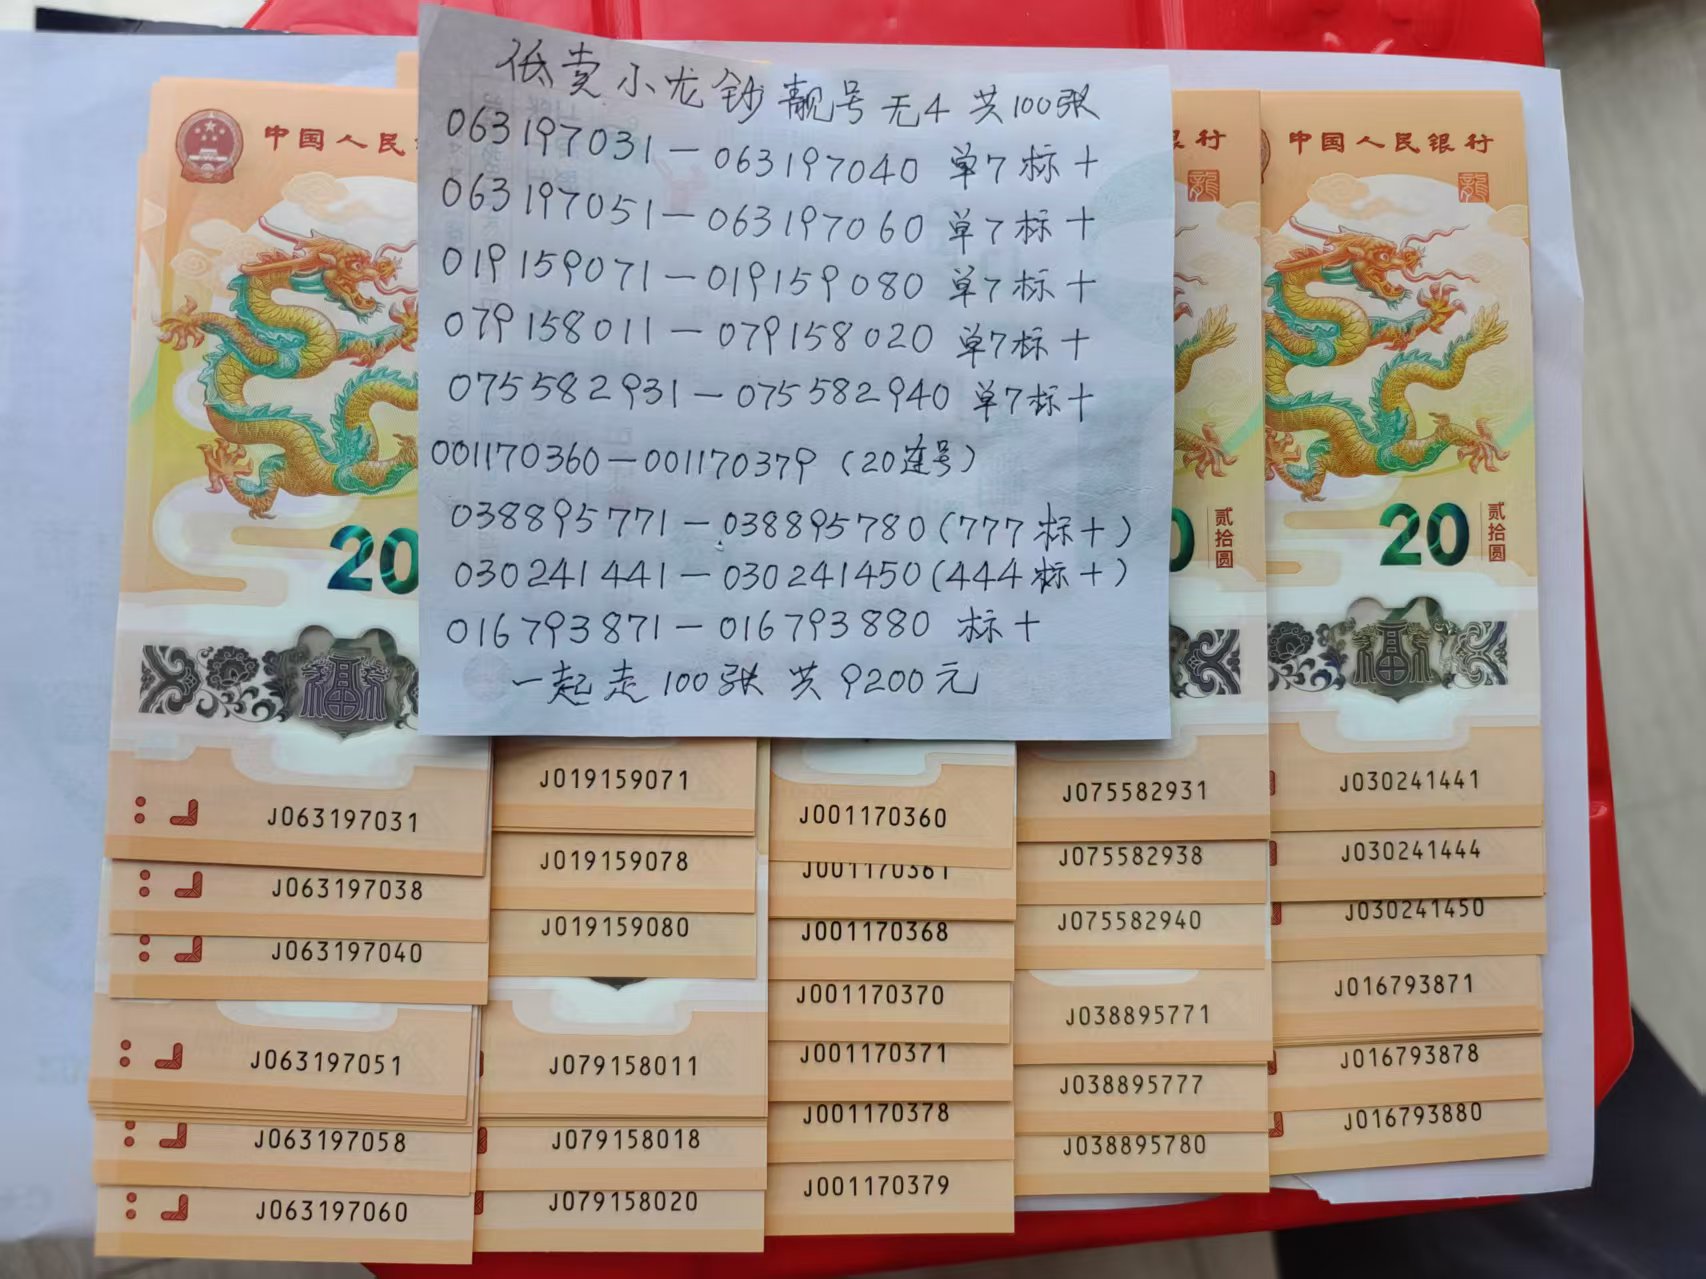 低卖小龙钞靓号无4 共100张
063197031—063197040 单7标十
063197051—063197060 单7标十
019159071—019159080 单7标十
079158011—079158020 单7标十
075582931—075582940 单7标十
001170360—001170379（20连号）
038895771—038895780（777标十）
030241441—030241450（444标十）
016793871—016793880 标十
一起走100张 共9200元
中国人民
20
J063197031
J063197038
J063197040
J063197051
J063197058
J063197060
J019159071
J019159078
J019159080
J079158011
J079158018
J079158020
J001170360
J001170361
J001170368
J001170370
J001170371
J001170378
J001170379
银行
龍
0
贰拾圆
J075582931
J075582938
J075582940
J038895771
J038895777
J038895780
中国人民银行
龍
20
贰拾圆
J030241441
J030241444
J030241450
J016793871
J016793878
J016793880